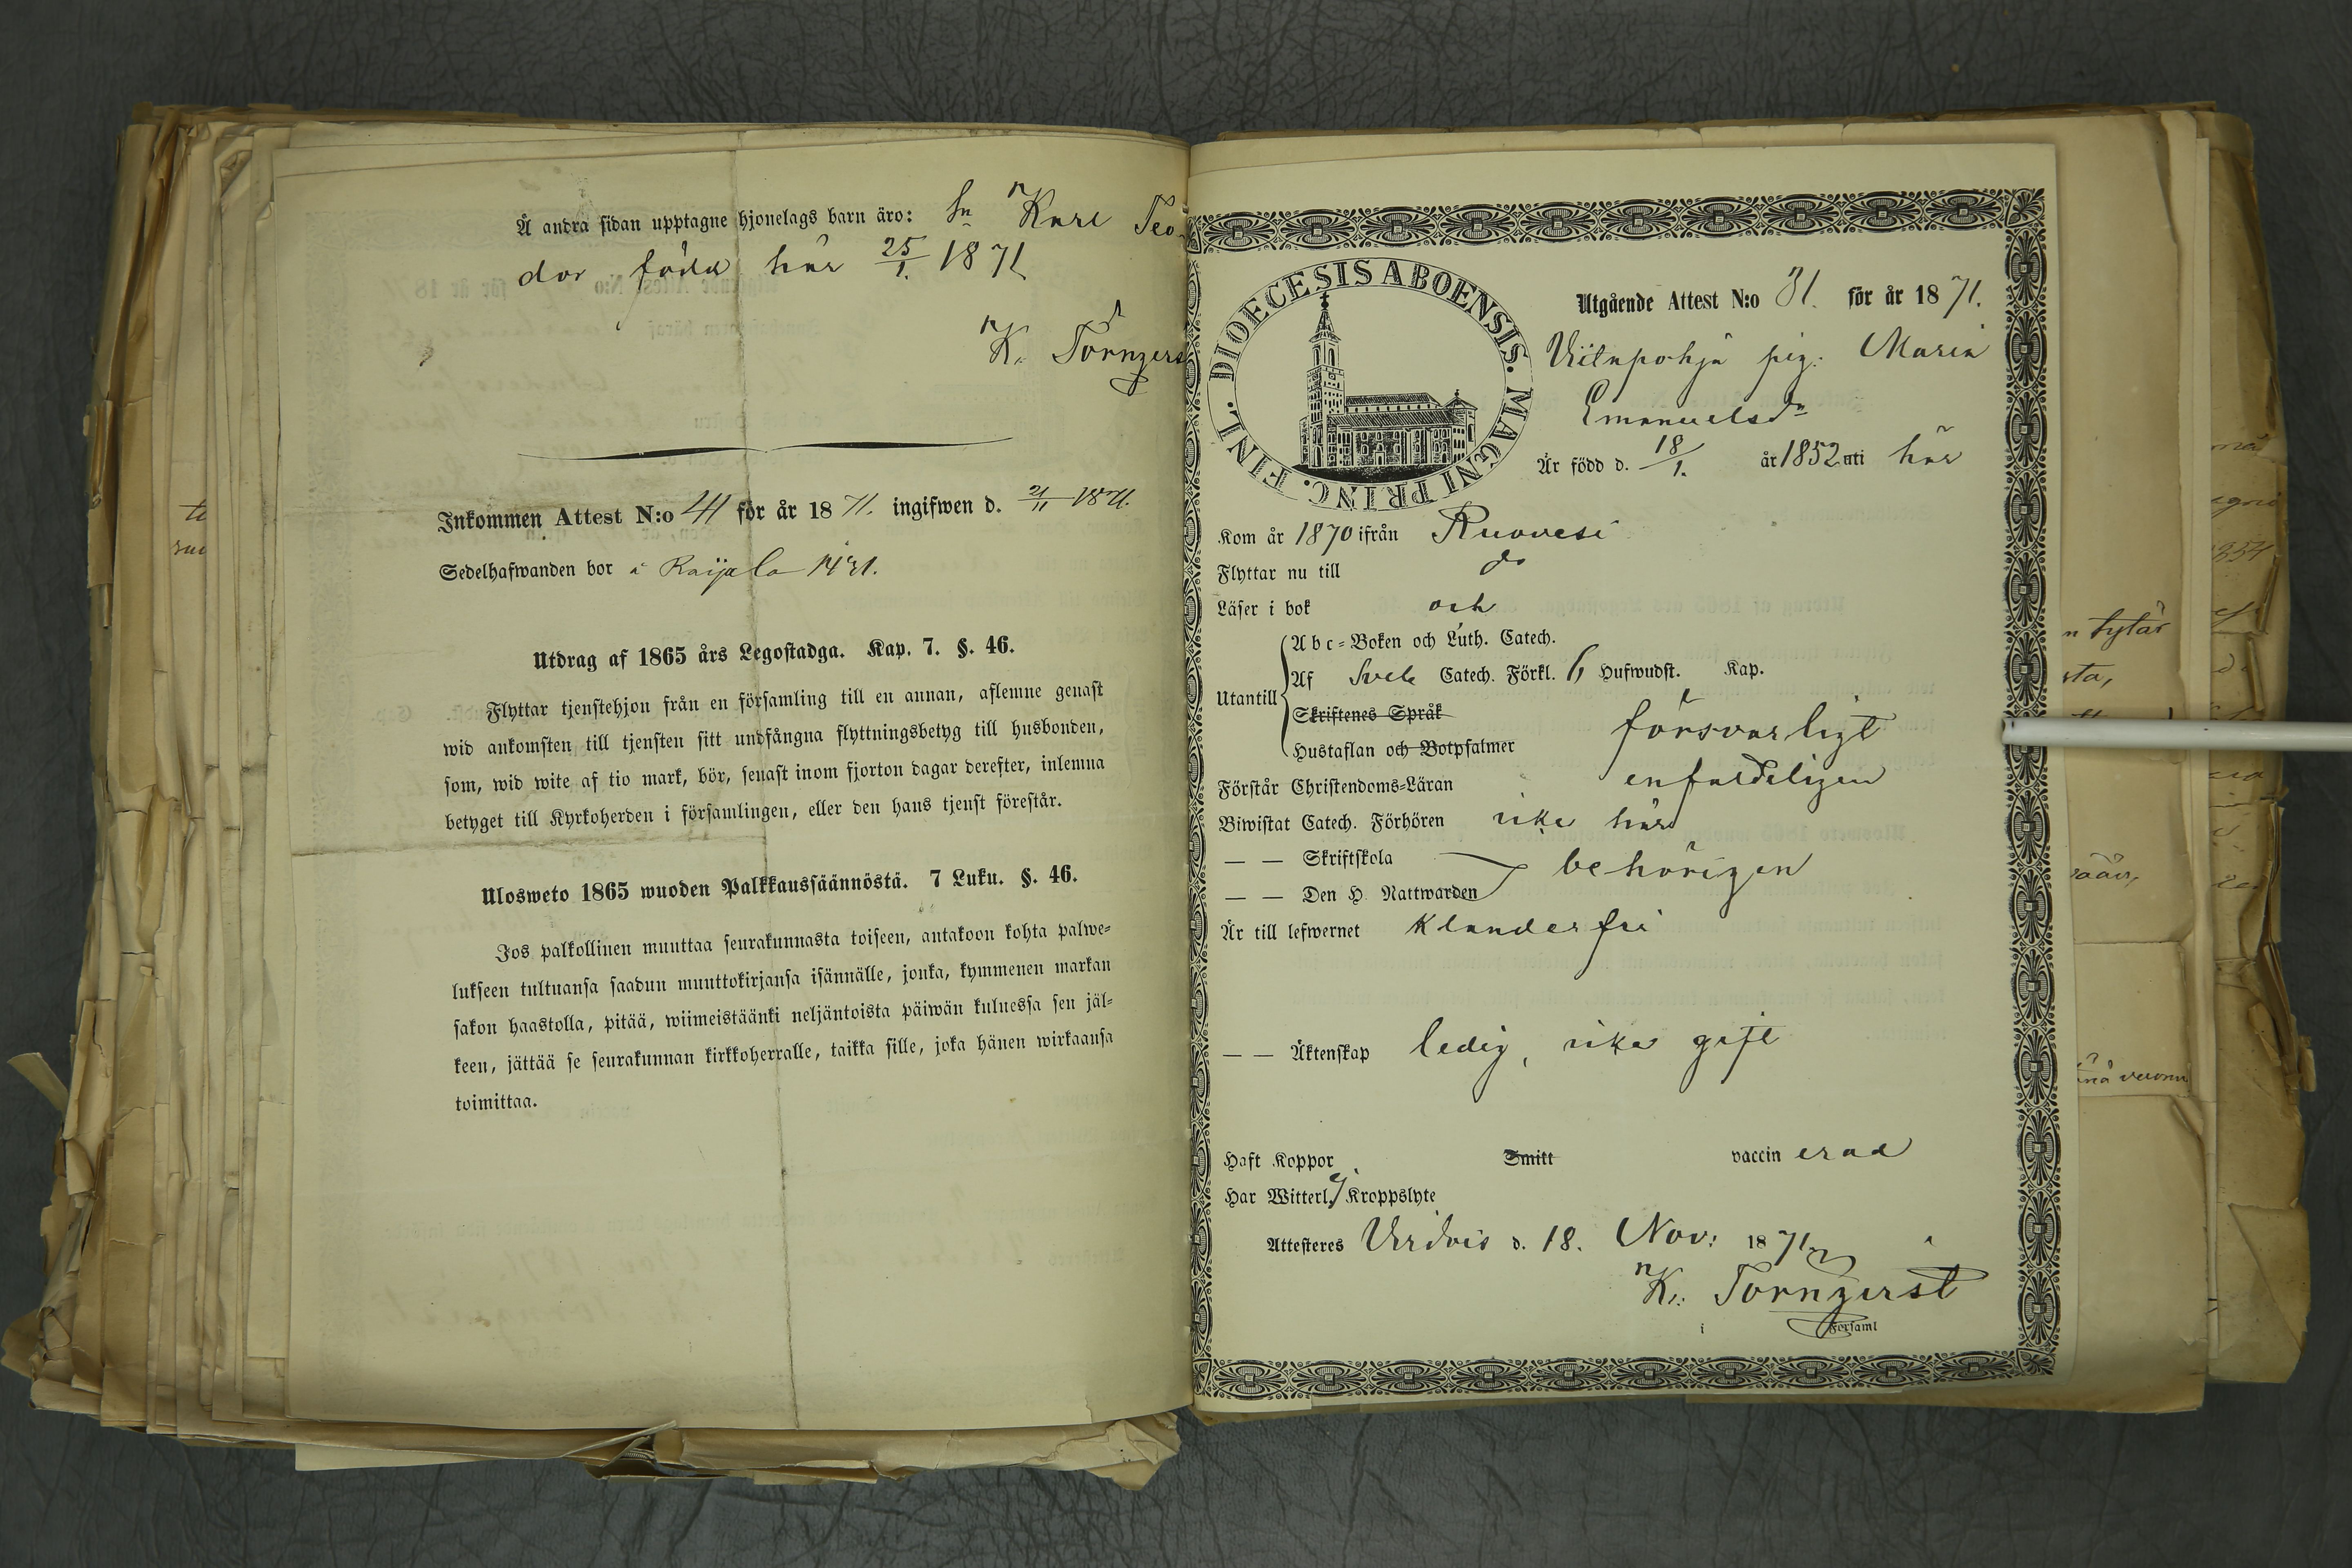 Å andra sidan upptagne hjonelags barn äro: Sn Karl Teo-
dor född här 25/1. 1871
K. Törnqvist
Inkommen Attest N:o 41 för år 1871. ingifwen d. 21/11 1871.
Sedelhafwanden bor å
Utdrag af 1865 års Legostadga. Kap. 7. §. 46.
Flyttar tjenstehjon från en församling till en annan, aflemne genast
wid ankomsten till tjensten sitt undfångna flyttningsbetyg till husbonden,
som, wid wite af tio mark, bör, senast inom fjorton dagar derefter, inlemna
betyget till Kyrkoherden i församlingen, eller den hans tjenst förestår.
Ulosweto 1865 wuoden Palkkaussäännöstä. 7 Luku. §. 46.
Jos palkollinen muuttaa seurakunnasta toiseen, antakoon kohta palwe-
lukseen tultuansa saadun muuttokirjansa isännälle, jonka, kymmenen markan
sakon haastolla, pitää, wiimeistäänki neljäntoista päiwän kuluessa sen jäl-
keen, jättää se seurakunnan kirkkoherralle, taikka sille, joka hänen wirkaansa
toimittaa.
DIOECESIS ABOENSIS. MAGNI PRINC. FINL.
Utgående Attest N:o 31. för år 1871.
Viitapohja pig. Maria
Emanuelsdr
Är född d. 18/1. år 1852 uti här
Kom år 1870 ifrån Ruovesi
Flyttar nu till do
Läser i bok och
Utantill
Abc-Boken och Luth. Catech.
Af Sveb Catech. Förkl. 6 Hufwudst. Kap.
Skriftenes Språk
Hustaflan och Botpsalmer
försvarligt
Förstår Christendoms-Läran enfaldeligen
Biwistat Catech. Förhören icke här
— — Skriftskola
— — Den H. Nattwarden behörigen
Är till lefwernet klanderfri
— — Äktenskap ledig, icke gift
Haft Koppor Smitt vaccinerad
Har Witterl. ej Kroppslyte
Attesteres Virdois d. 18. Nov: 1871
K. Törnqvist
i Församl